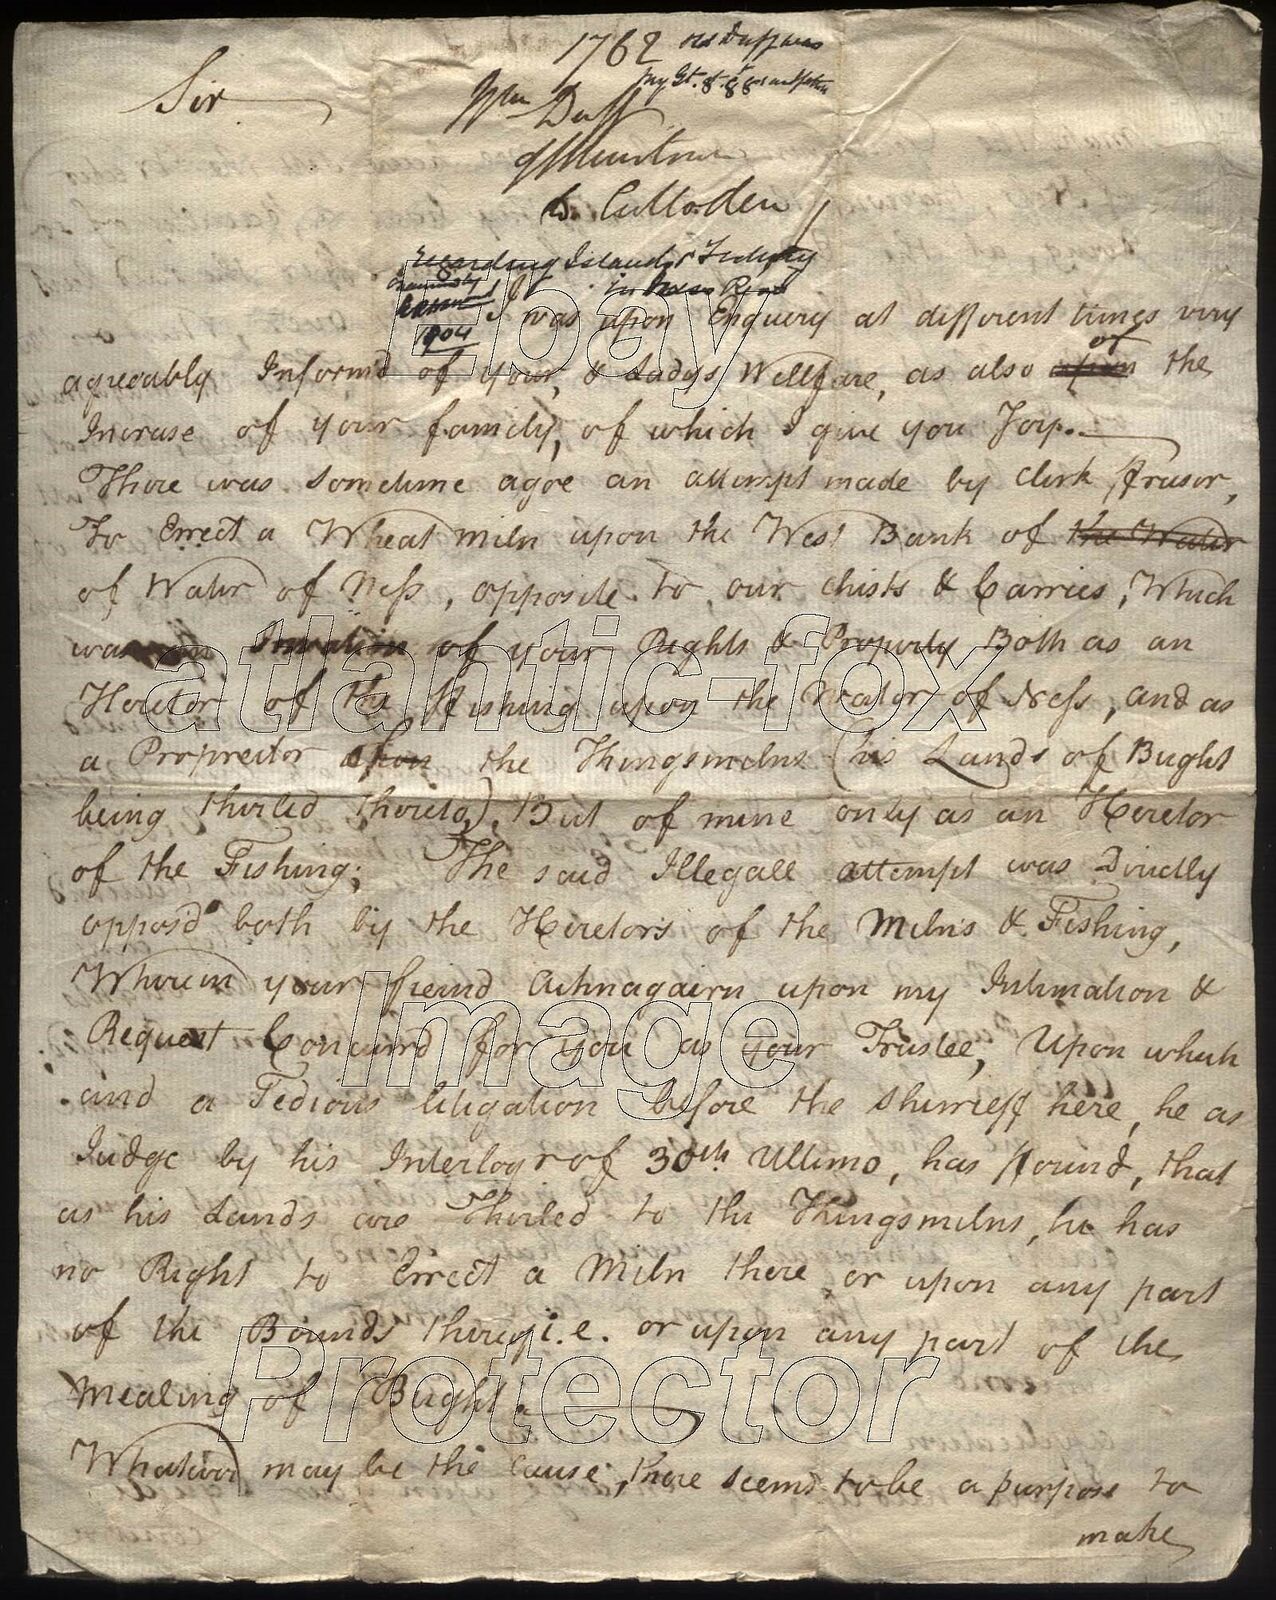 1762 old Duff was
my Gt. gt. ggrandfather
Sir
Wm Duff
of Muirtown
to Culloden
regarding Island & Fishery
in Ness River
Examined
1904
I was upon Enquery at different times very
agreeably Inform'd of your, & Ladys Wellfare, as also upon of the
Increse of your family, of which I give you Joy.
There was sometime agoe an attempt made by Clerk Fraser,
To Errect a Wheat miln upon the West Bank of the Water
of Water of Ness, opposite to our chists & Carries, Which
was an Invation of your Rights & Property Both as an
Heretor of the Fishing upon the Water of Ness, and as
a Proprietor upon the Thingsmilns (his Lands of Bught
being thirled thereto). But of mine only as an Heretor
of the Fishing; The said Illegall attempt was Directly
oppos'd both by the Heretors of the Milns & Fishing,
Wherein your freind Achnagairn upon my Intimation &
Request Concurrd for you as your Trustee, Upon which
and a Tedious litigation before the Shirrieff here, he as
Judge by his Interlogr of 30th Ultimo, has found, that
as his Lands are Thirled to the Kingsmilns, he has
no Right to Errect a Miln there or upon any part
of the Bounds thereof i.e. or upon any part of the
Mealing of Bught.
Whatever may be the cause, there seems to be a purpose to
make
Ebay
atlantic-fox
Image
Protector